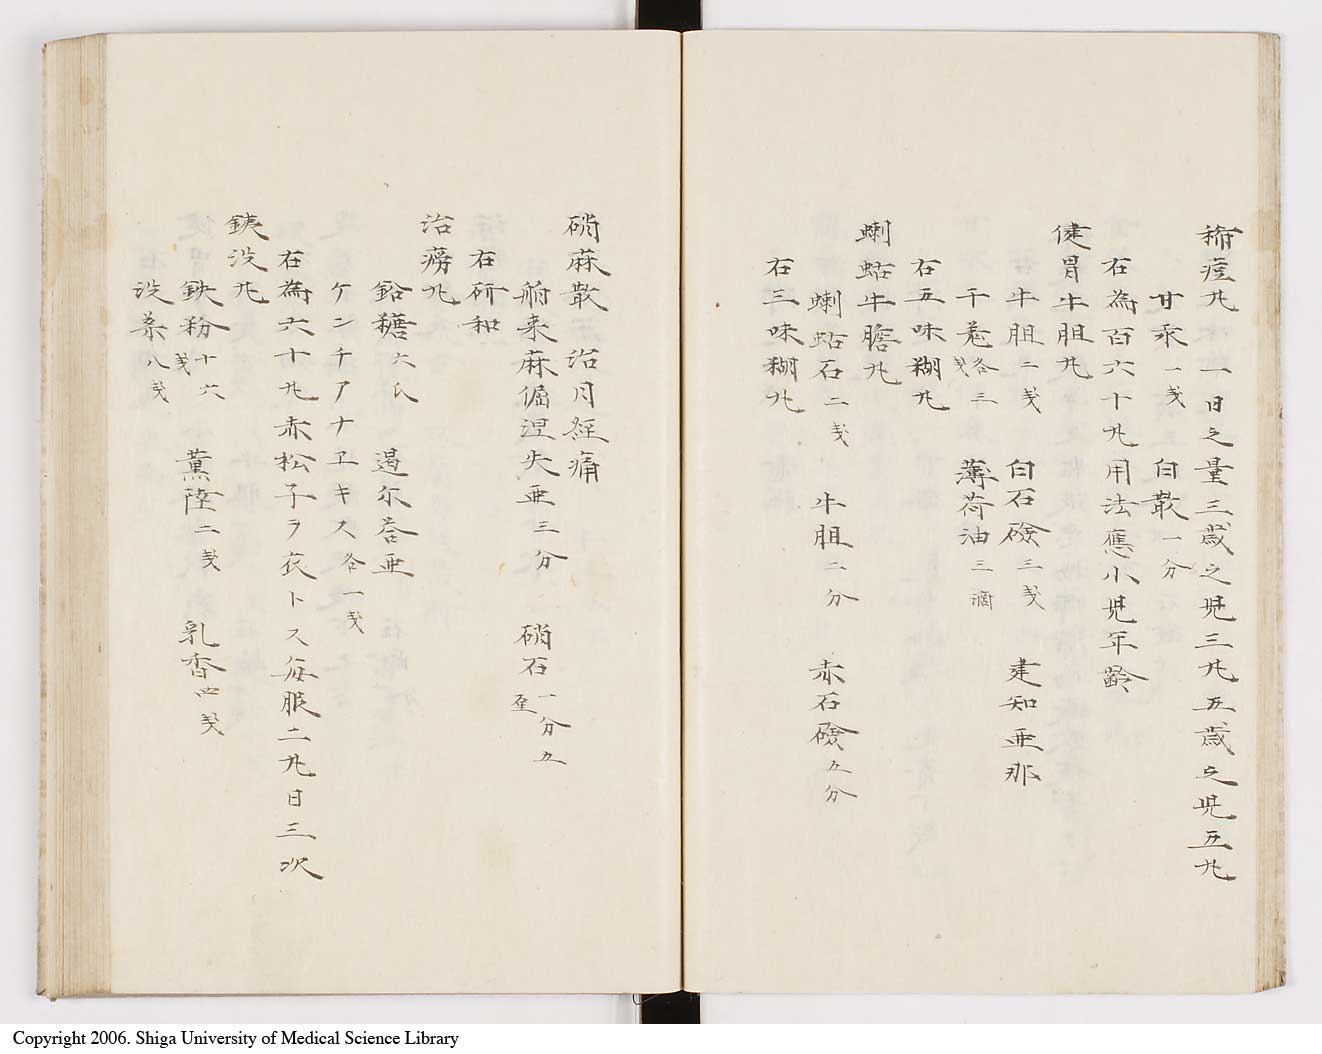 稚疳丸 一日之量三歳之児三丸五歳之児五丸
甘汞一戔 白散一分
右為百六十丸用法應小児年齢
健胃牛胆丸
牛胆二戔 白石礆三戔 建知亜那
千葱各三戔 薄荷油三滴
右五味糊丸
蝲蛄牛膽丸
蝲蛄石二戔 牛胆二分 赤石礆五分
右三味糊丸
硝麻散 治月経痛
舶来麻倔涅矢亜三分 硝石一分五厘
右研和
治癆丸
鉛糖六氏 遏尓荅亜
ケンチアナヱキス各一戔
右為六十丸赤松子ヲ衣トス毎服二丸日三次
鉄没丸
鉄粉十六戔 薫陸二戔 乳香四戔
没薬八戔
Copyright 2006. Shiga University of Medical Science Library